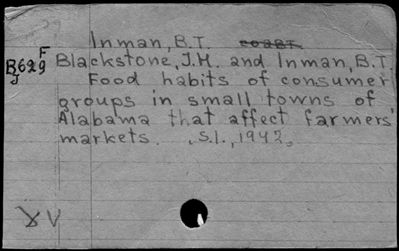 Inman, B.T.
F
B629
J
Blackstone, J.H. and Inman, B.T.
Food habits of consumer
groups in small towns of
Alabama that affect farmers'
markets. s.l., 1942.
V